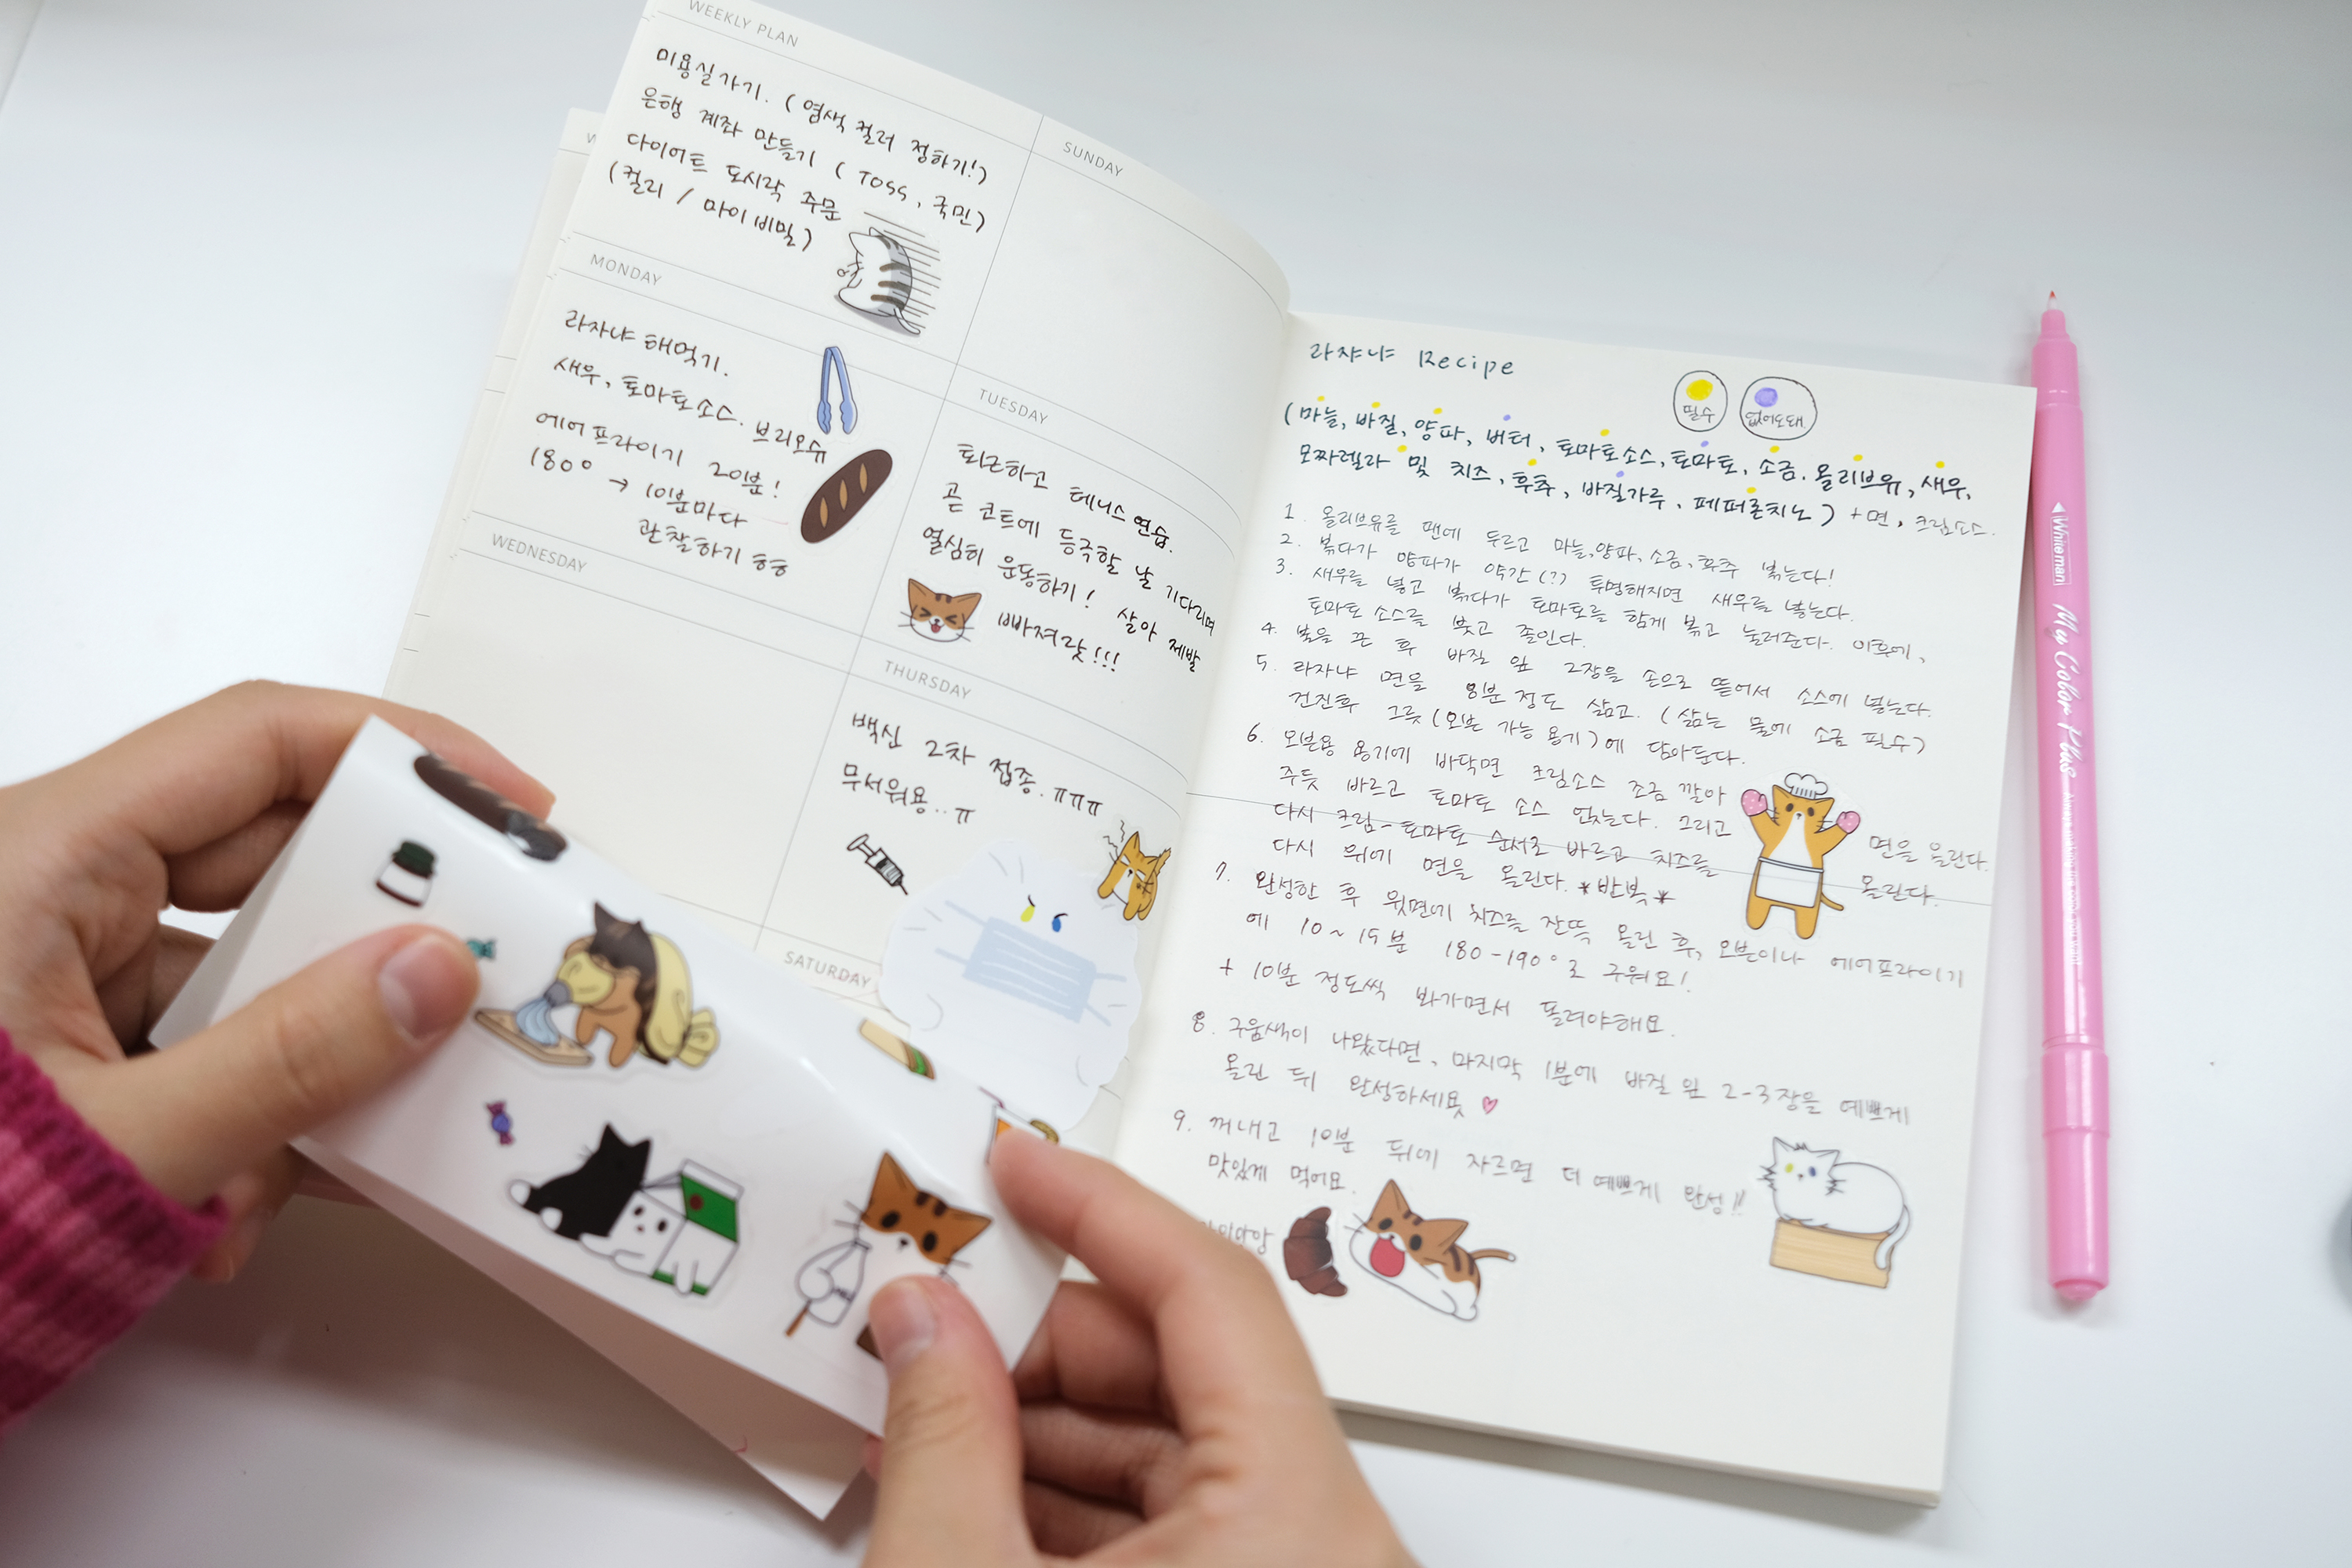 WEEKLY PLAN
미용실가기. (염색 컬러 정하기!)
은행 계좌 만들기 ( TOSS, 국민)
다이어트 도시락 주문
(컬리 / 마이비밀)
SUNDAY
MONDAY
라자냐 해먹기.
새우, 토마토소스. 브리오슈
에어프라이기 20분!
180° → 10분마다
관찰하기 ㅎㅎ
TUESDAY
퇴근하고 테니스 연습.
곧 코트에 등극할 날 기다리며
열심히 운동하기! 살아 제발
빠져랏!!!
WEDNESDAY
THURSDAY
백신 2차 접종.ㅠㅠㅠ
무서워용..ㅠ
SATURDAY
라쟈냐 Recipe
필수
없어도돼
(마늘, 바질, 양파, 버터, 토마토소스, 토마토, 소금. 올리브유, 새우,
모짜렐라 및 치즈, 후추, 바질가루, 페퍼론치노) +면, 크림소스.
1. 올리브유를 팬에 두르고 마늘,양파,소금,후추 볶는다!
2. 볶다가 양파가 약간(?) 투명해지면 새우를 넣는다.
3. 새우를 넣고 볶다가 토마토를 함께 볶고 눌러준다. 이후에,
토마토 소스를 붓고 졸인다.
4. 불을 끈 후 바질 잎 2장을 손으로 뜯어서 소스에 넣는다.
5. 라자냐 면을 8분 정도 삶고. (삶는 물에 소금 필수)
건진후 그릇(오븐 가능 용기)에 담아둔다.
6. 오븐용 용기에 바닥면 크림소스 조금 깔아
주듯 바르고 토마토 소스 얹는다. 그리고 면을 올린다.
다시 크림-토마토 순서로 바르고 치즈를 올린다.
다시 위에 면을 올린다. *반복*
7. 완성한 후 윗면에 치즈를 잔뜩 올린 후, 오븐이나 에어프라이기
에 10~15분 180-190°로 구워요!
+ 10분 정도씩 봐가면서 돌려야해요.
8. 구움색이 나왔다면, 마지막 1분에 바질 잎 2-3장을 예쁘게
올린 뒤 완성하세욧 ♡
9. 꺼내고 10분 뒤에 자르면 더 예쁘게 완성!!
맛있게 먹어요.
Whiteman
My Color Plus